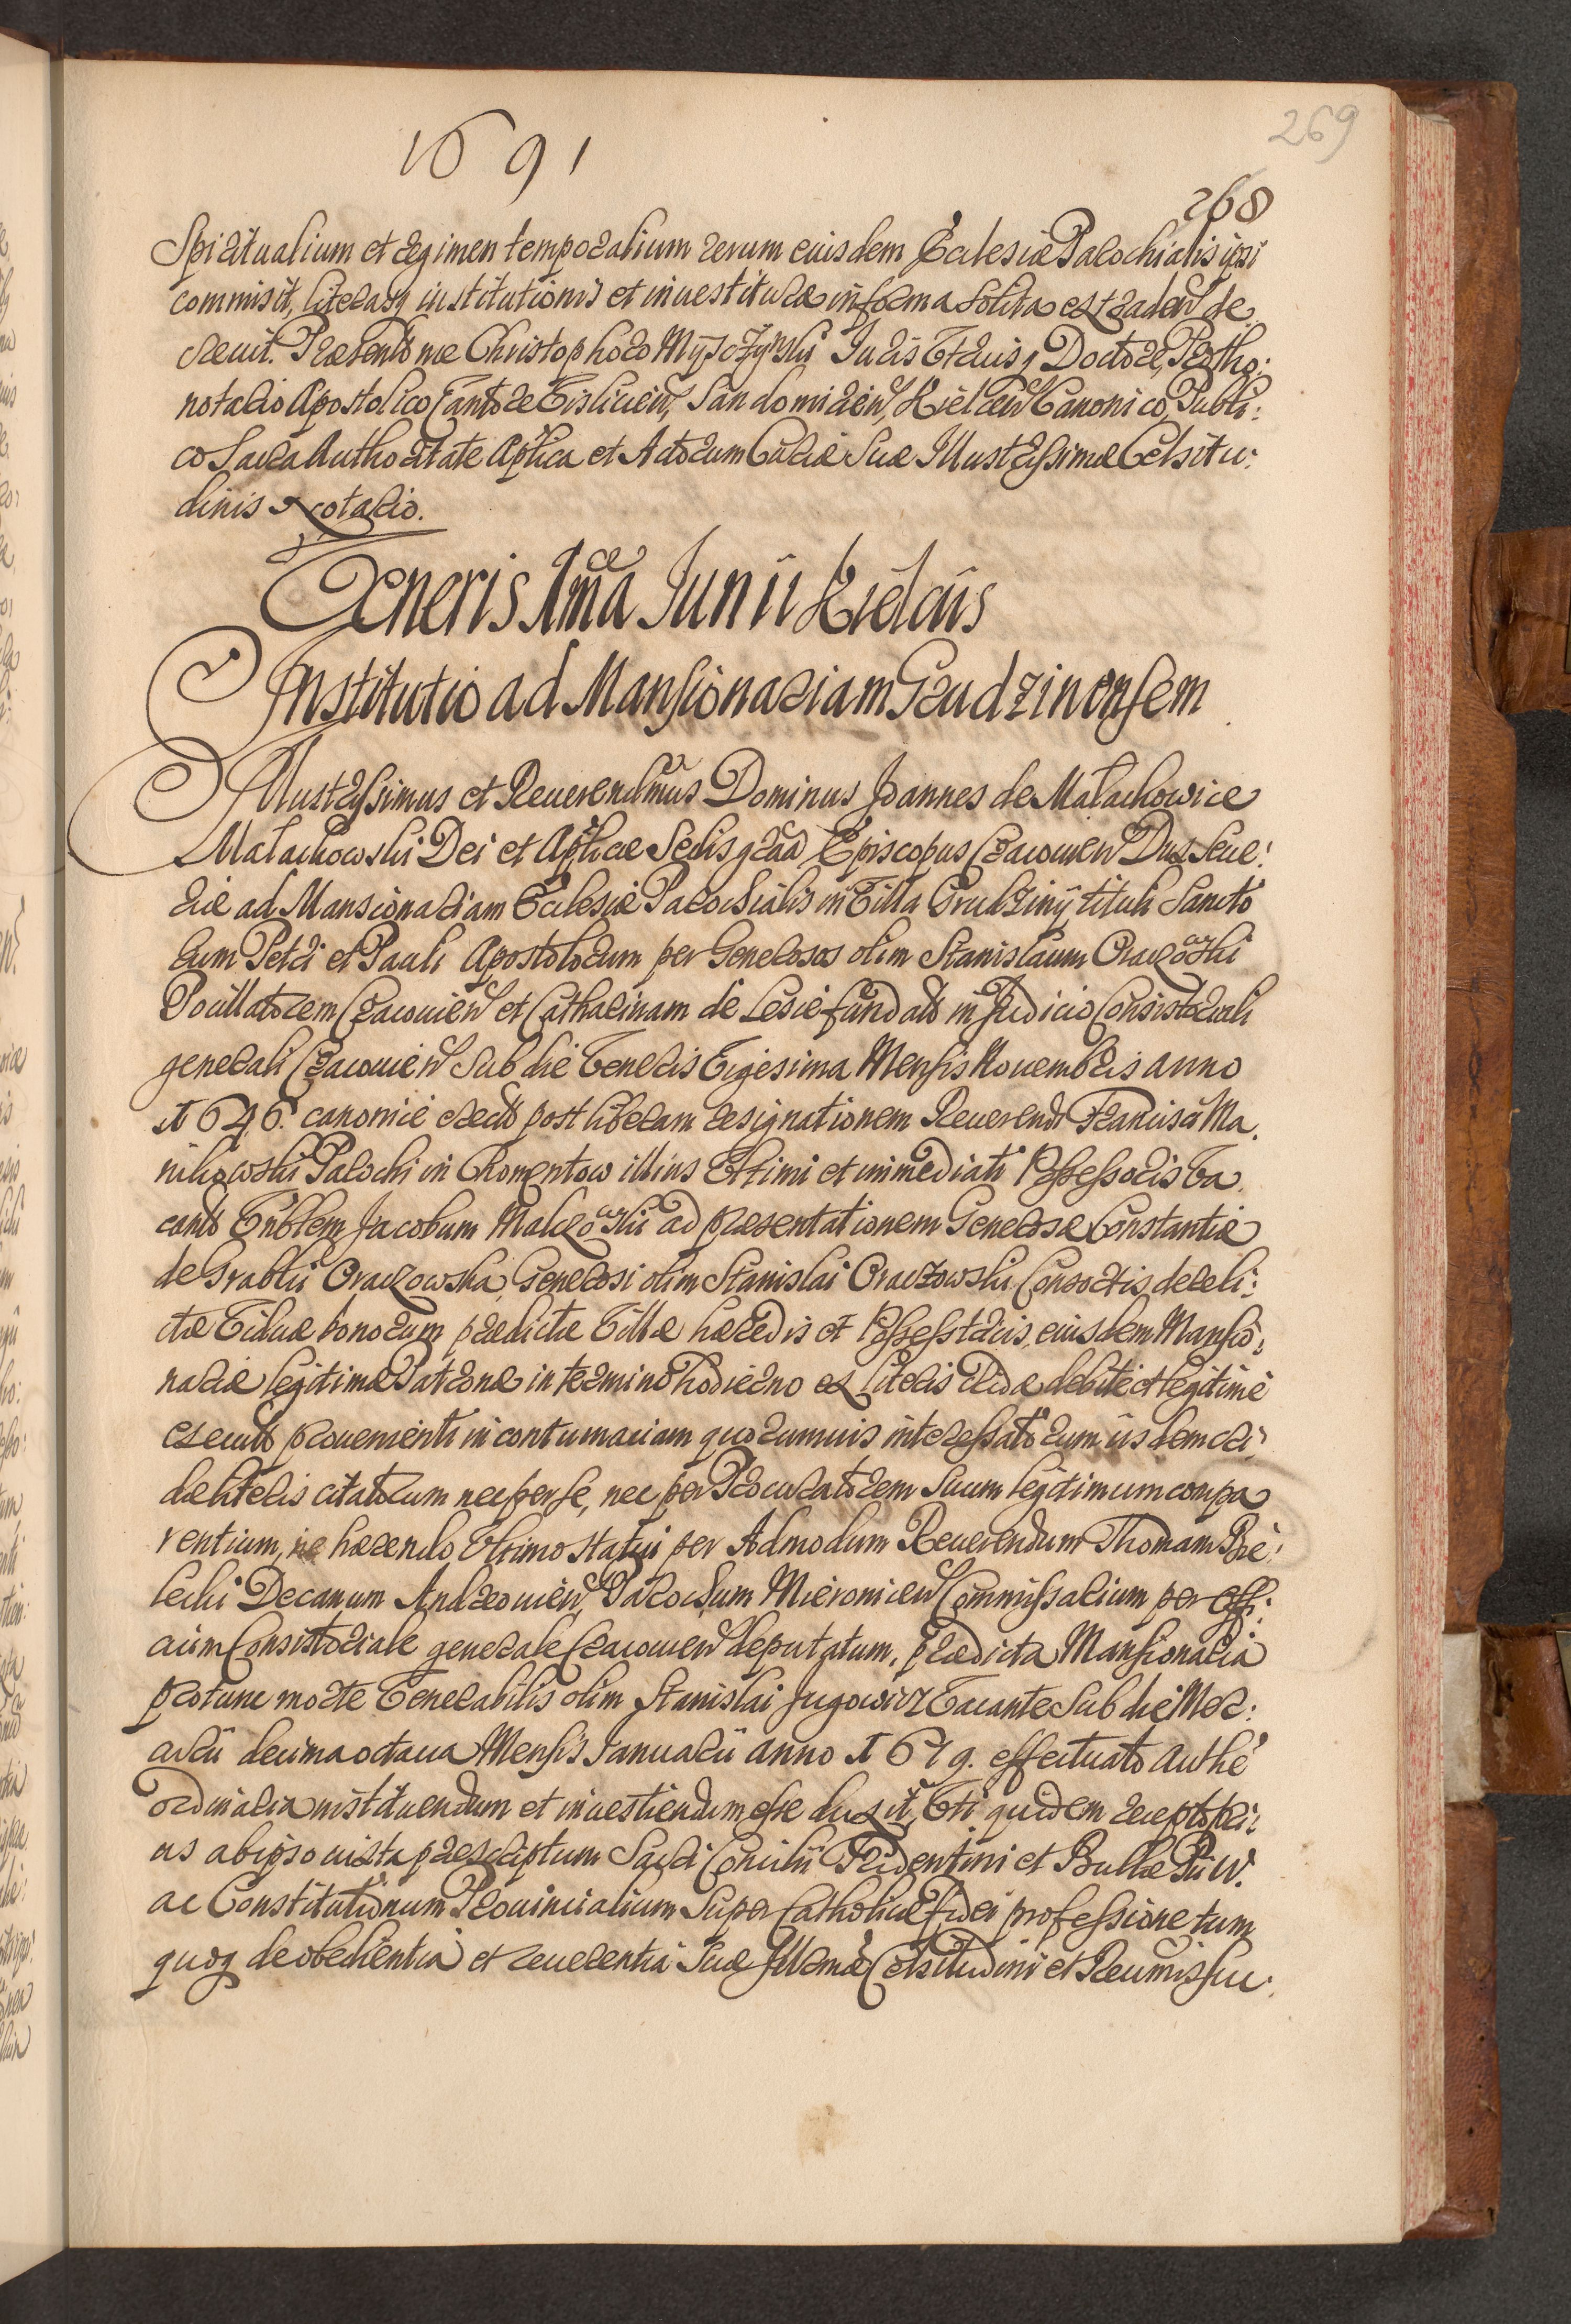 1691
269
268
Spiritualium et regimen temporalium rerum eiusdem Ecclesiæ Parochialis ipsi
commisit, literasq institutionis et inuestituræ in forma solita extraden de
creuit. Præsente me Christophoro Juris Utriusq Doctore, Protho:
notario Apostolico Cantore Vislicien, Sandomirien, Kielcen Canonico, Publi:
co Sacra Authoritate Aplica et Actorum Curiæ Suæ Illustrissimæ Celsitu:
dinis Notario.
Veneris 1ma Junii Kielciis
Institutio ad Mansionariam Grudzinensem
Illustrissimus et Reuerendmus Dominus Joannes de Małachowice
Małachowski Dei et Aplicæ Sedis graa Episcopus Cracouien Dux Seue:
riæ ad Mansionariam Ecclesiæ Parochialis in Villa Grudziny tituli Sancto
rum Petri et Pauli Apostolorum per Generosos olim Stanislaum Oraczowski
Pocillatorem Cracouien et Catharinam de Lesie fundato in Judicio Consistoriali
generali Cracouien sub die Veneris Vigesima Mensis Nouembris anno
1646. canonicè erecto post liberam resignationem Reuerendi Francisci Ma
Parochi in Chomentow illius Ultimi et immediati Possessoris Va
cante Jacobum ad præsentationem Generosæ Constantiæ
de Grabkii Oraczowska, Generosi olim Stanislai Oraczowski Consortis dereli:
ctæ Viduæ bonorum prædictæ Villæ hæredis et Possesstricis, eiusdem Mansio:
nariæ legitimæ Patronæ in termino hodierno ex literis Cridæ debitè et legitimè
executo prouenienti in contumaciam quorumuis interessatorum iisdem cri:
dæ literis citatorum nec per se, nec per Procuratorem suum legitimum compa
rentium, hærendo Ultimo statui per Admodum Reuerendum Thomam
Decanum Andreouien, Parochum Mieronicen Commissarium per Offi:
cium Consistoriale generale Cracouien deputatum, prædicta Mansionaria
protunc morte Venerabilis olim Stanislai Jugowicz Vacante sub die Mer:
curii decima octaua Mensis Januarii anno 1679. effectuato authe
ordinaria instituendum et inuestiendum esse duxit, Uti quidem recepto pri:
us ab ipso iuxta præscriptum Sacri Concilii Tridentini et Bullæ Pii IV.
ac Constitutionum Prouincialium super Catholicæ fidei professione tum
quoq de obedientia et reuerentia Suæ Illrmæ Celsitudini et Reumis suc: